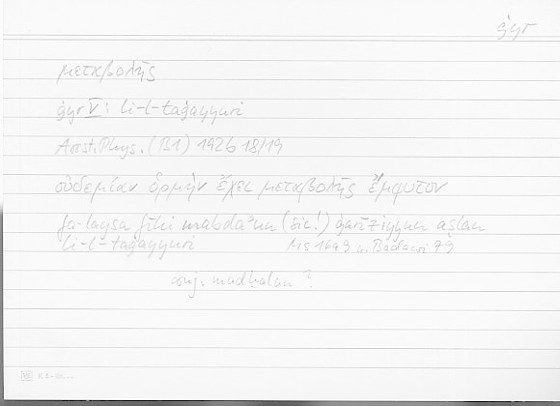 ġyr
μεταβολῆς
ġyr V: li-l-taġayyuri
Arist. Phys. (B1) 192b 18/19
οὐδεμίαν ὁρμὴν ἔχει μεταβολῆς ἔμφυτον
fa-laysa fīhi mabdaʾun (sic!) ġarīziyyun aṣlan
li-l-taġayyuri Ms 16a9 u. Badawi 79
conj. madḫalun?